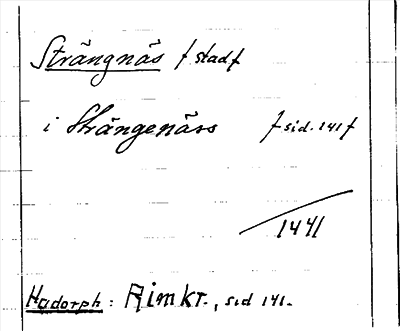 Strängnäs / stad /
i Strängenäss / sid. 141 /
1441
Hadorph : Rimkr., sid 141.